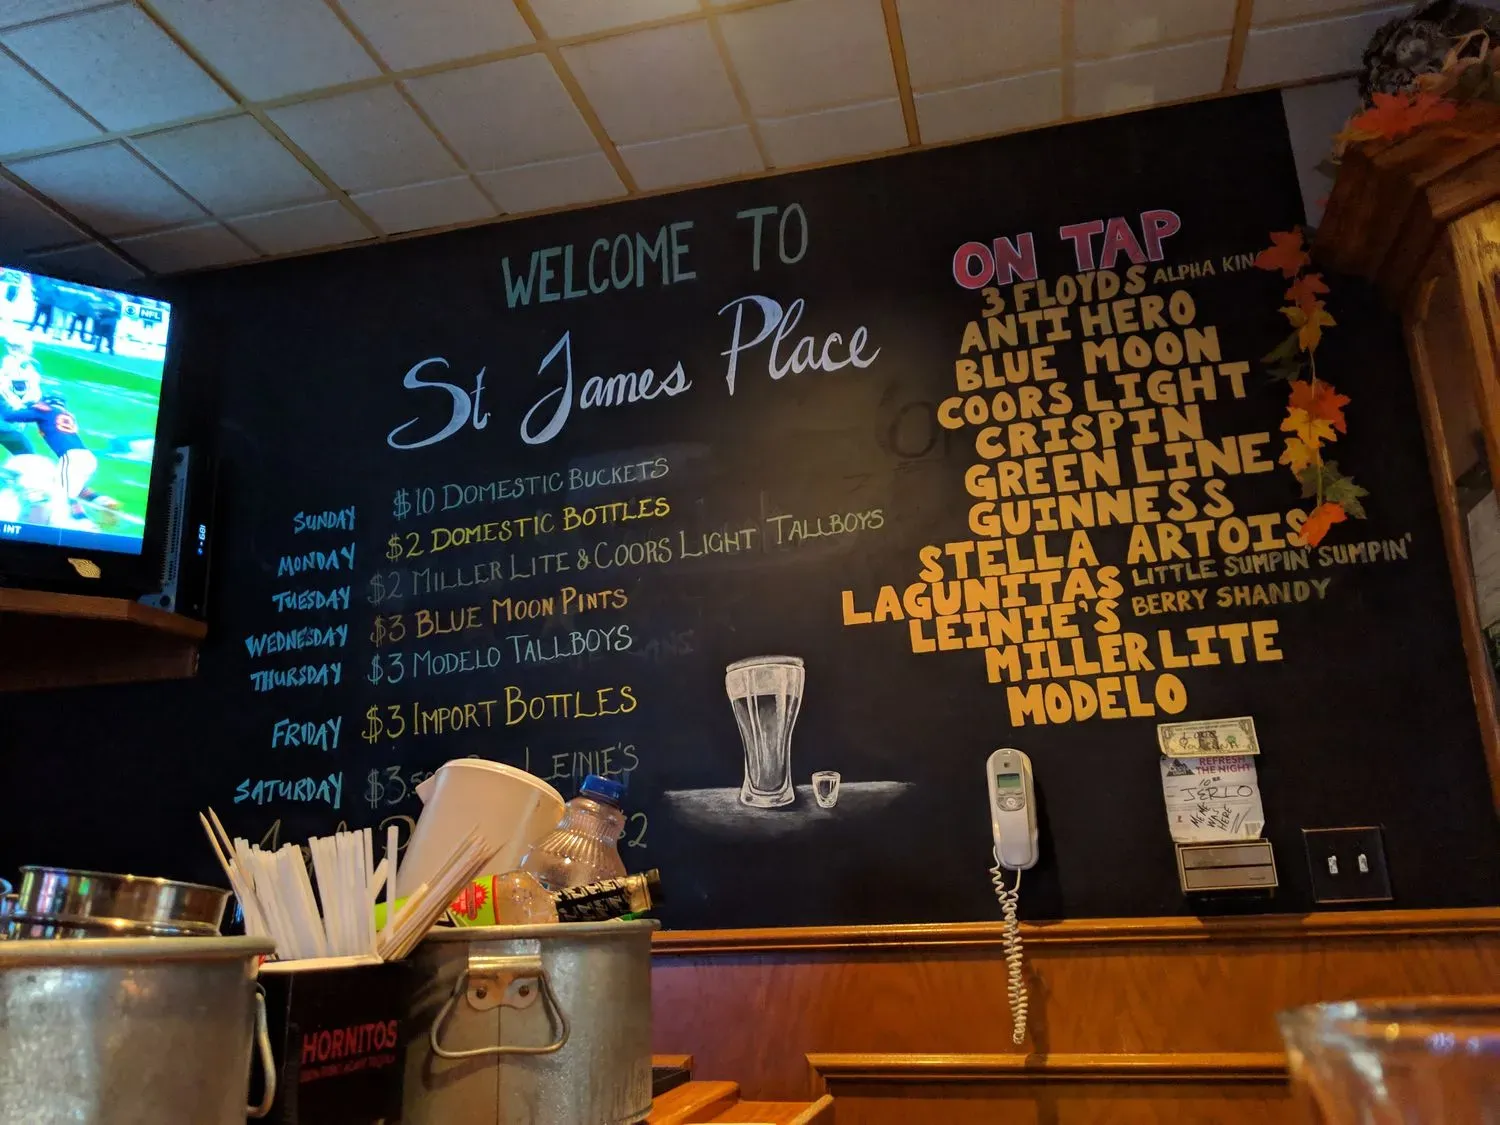 WELCOME TO
St. James Place
SUNDAY $10 DOMESTIC BUCKETS
MONDAY $2 DOMESTIC BOTTLES
TUESDAY $2 MILLER LITE & COORS LIGHT TALLBOYS
WEDNESDAY $3 BLUE MOON PINTS
THURSDAY $3 MODELO TALLBOYS
FRIDAY $3 IMPORT BOTTLES
SATURDAY $3.50 LEINIE'S
$2
ON TAP
3 FLOYDS ALPHA KING
ANTI HERO
BLUE MOON
COORS LIGHT
CRISPIN
GREEN LINE
GUINNESS
STELLA ARTOIS
LAGUNITAS LITTLE SUMPIN' SUMPIN'
LEINIE'S BERRY SHANDY
MILLER LITE
MODELO
REFRESH
THE NIGHT
JERLO
WAS
HERE
NFL
INT
HORNITOS